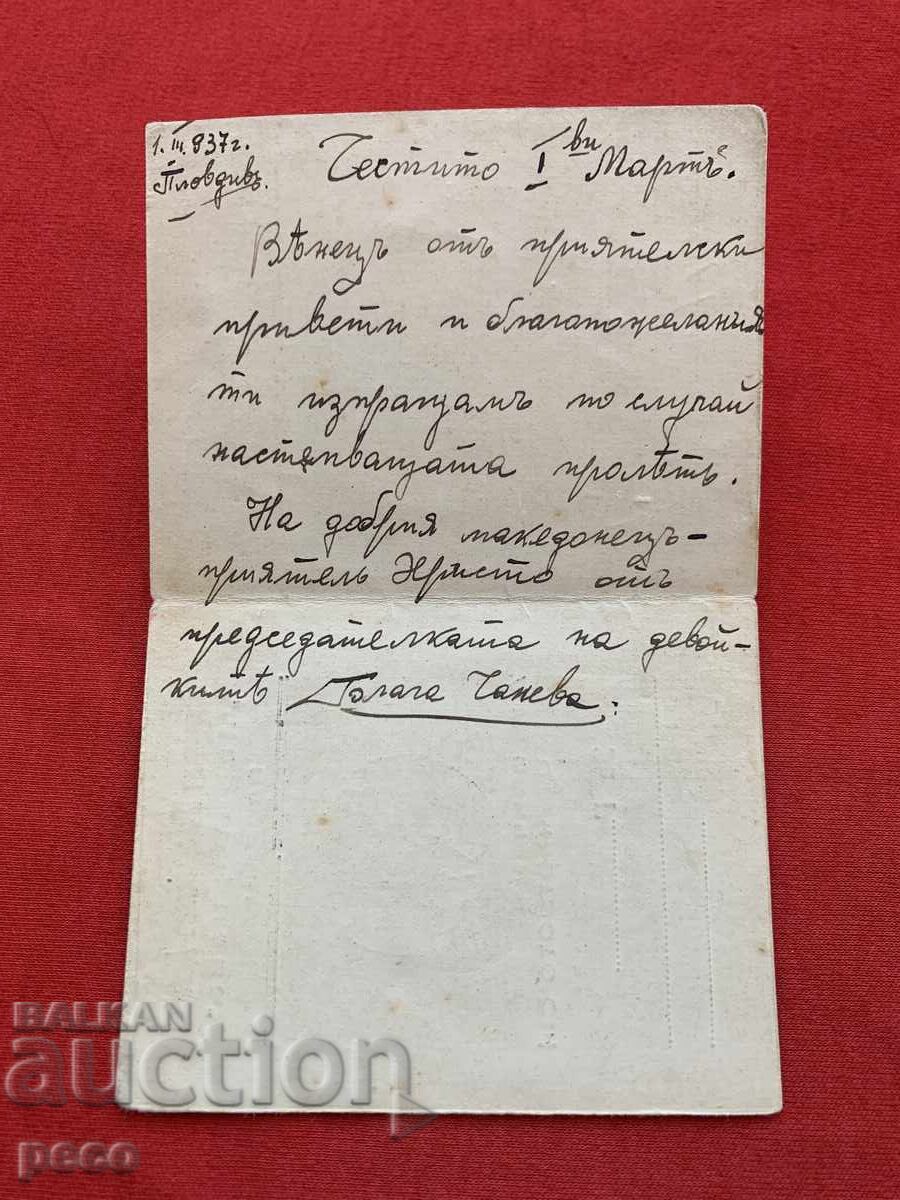 1. III. 937 г.
Пловдивъ
Честито I ви Мартъ.
Вѣнецъ отъ приятелски
привети и благопожелания
ти изпращамъ по случай
настѫпващата пролѣть.
На добрия македонецъ-
приятель Христо отъ
председателката на девой-
китѣ Чанева.
BALKAN
auction
peco